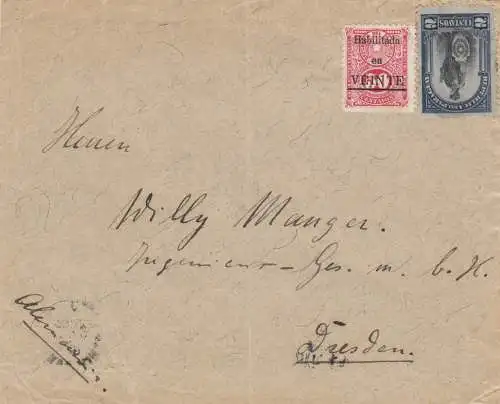 Habilitada
en
VEINTE
CENTAVOS
2 CENTAVOS 2
Herren
Willy Manger.
Ingenieur-Ges. m. b. H.
Dresden.
Alemania.